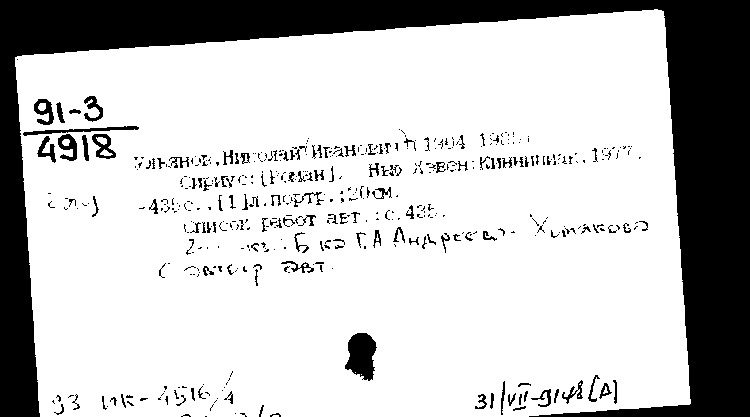 91-3
4918
Ульянов, Николай (Иванович)
Сириус: [Роман]. Нью Хэвен: Киннипиак, 1977.
-435с., [1]л.портр.; 20см.
Список работ авт.: с.435.
Б-ка Г.А Андреева-Хомякова
С автогр авт.
93 ИК-4516/4
31/VII-9148 [А]